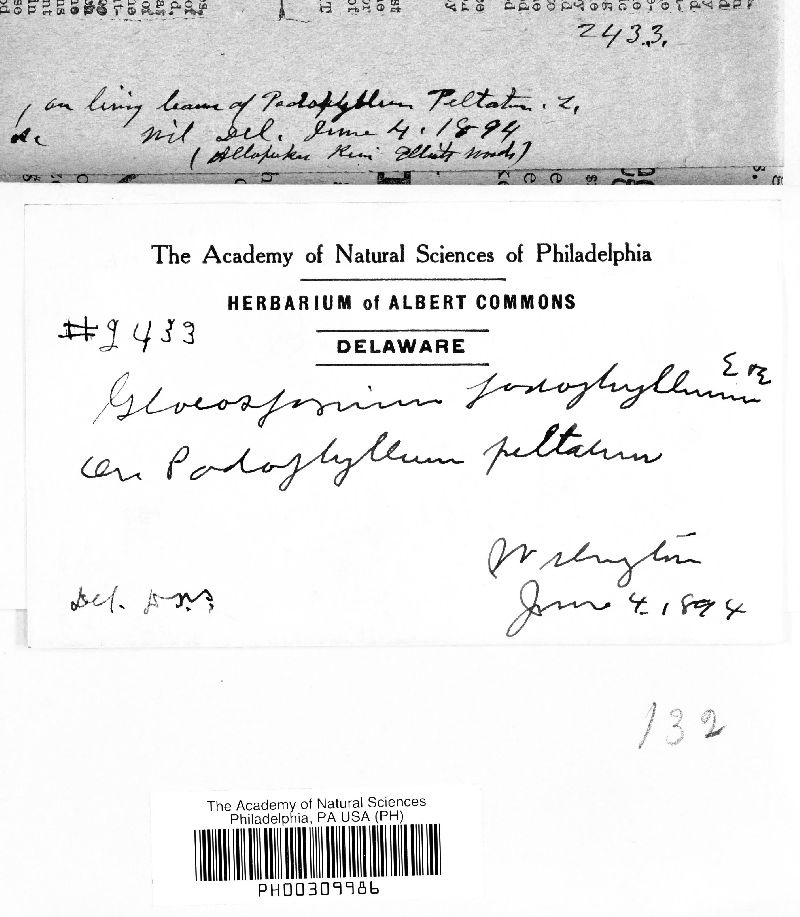 2433.
, on living leaves of Podophyllum Peltatum. L.
Wil Del. June 4. 1894
The Academy of Natural Sciences of Philadelphia
HERBARIUM of ALBERT COMMONS
#2433
DELAWARE
Gloeosporium podophyllinum E & E
On Podophyllum peltatum
Wilmington
Del.
June 4. 1894
132
The Academy of Natural Sciences
Philadelphia, PA USA (PH)
PH00309986